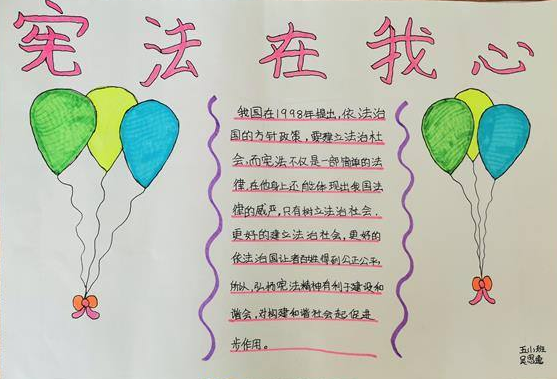 宪法在我心
我国在1998年提出,依法治
国的方针政策,要建立法治社
会,而宪法不仅是一部简单的法
律,在他身上还能体现出我国法
律的威严,只有树立法治社会,
更好的建立法治社会,更好的
依法治国让老百姓得到公正公平,
所以,弘扬宪法精神有利于建设和
谐会,对构建和谐社会起促进
步作用。
五小班
吴思